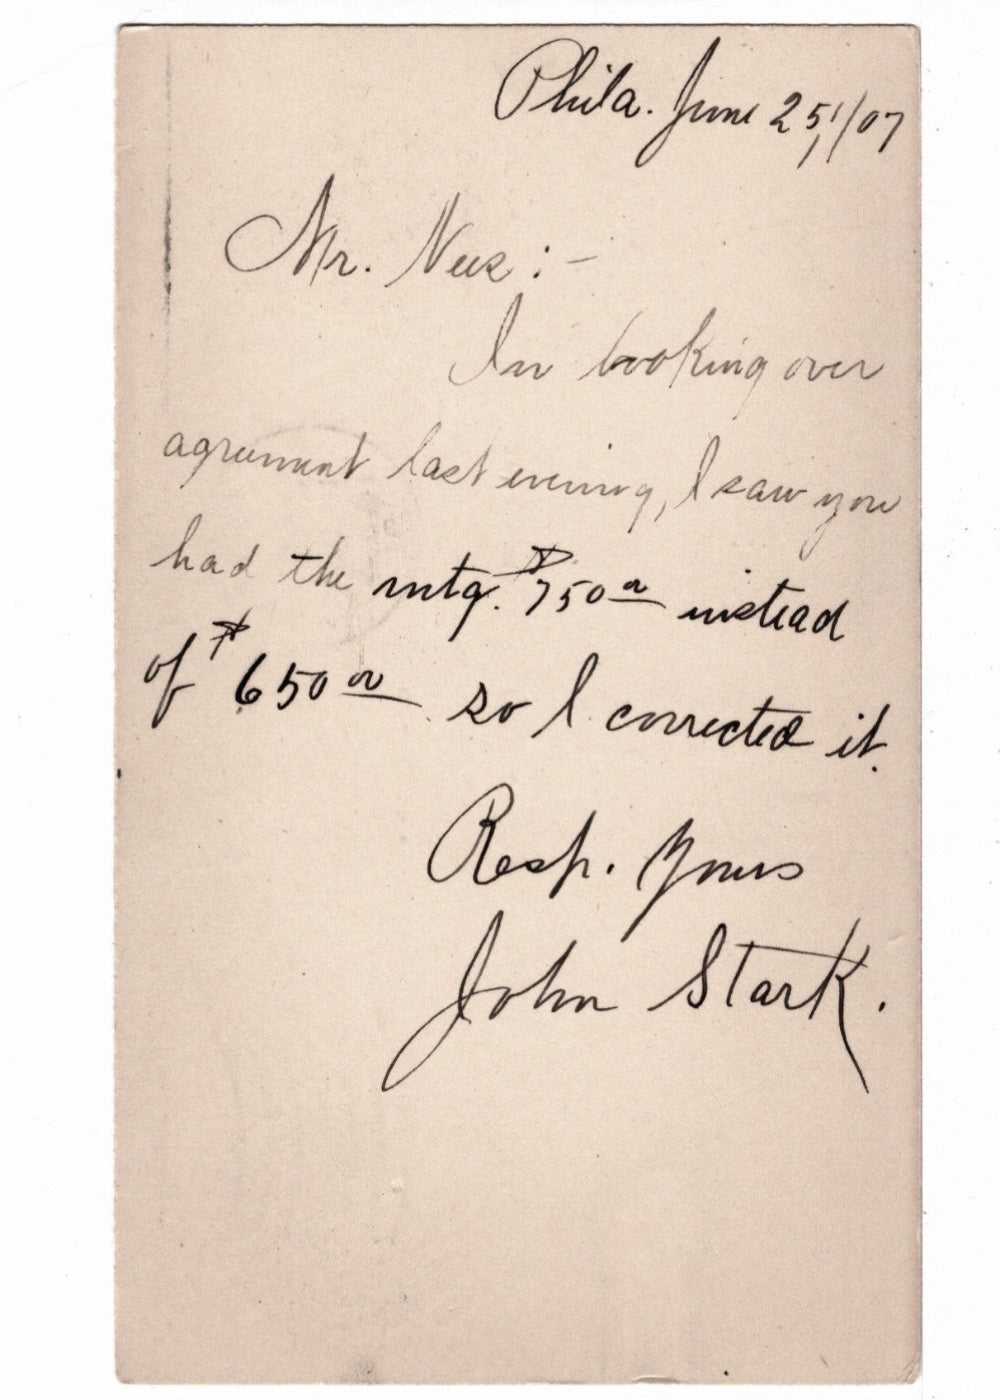 Phila. June 25,/07
Mr. Nees :-
In looking over
agreement last evening, I saw you
had the mtg. $750 00 instead
of $650 00 so I corrected it.
Resp. Yours
John Stark.